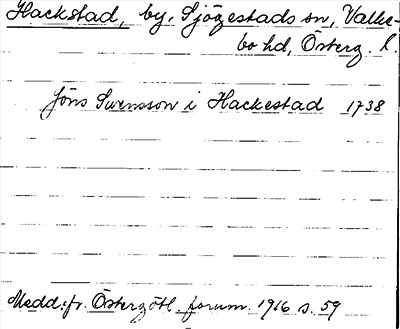 Hackstad, by, Sjögestads sn, Valke-
bo hd, Österg. l.
Jöns Swensson i Hackestad 1738
Medd. fr. Östergötl. fornm. 1916 s. 59